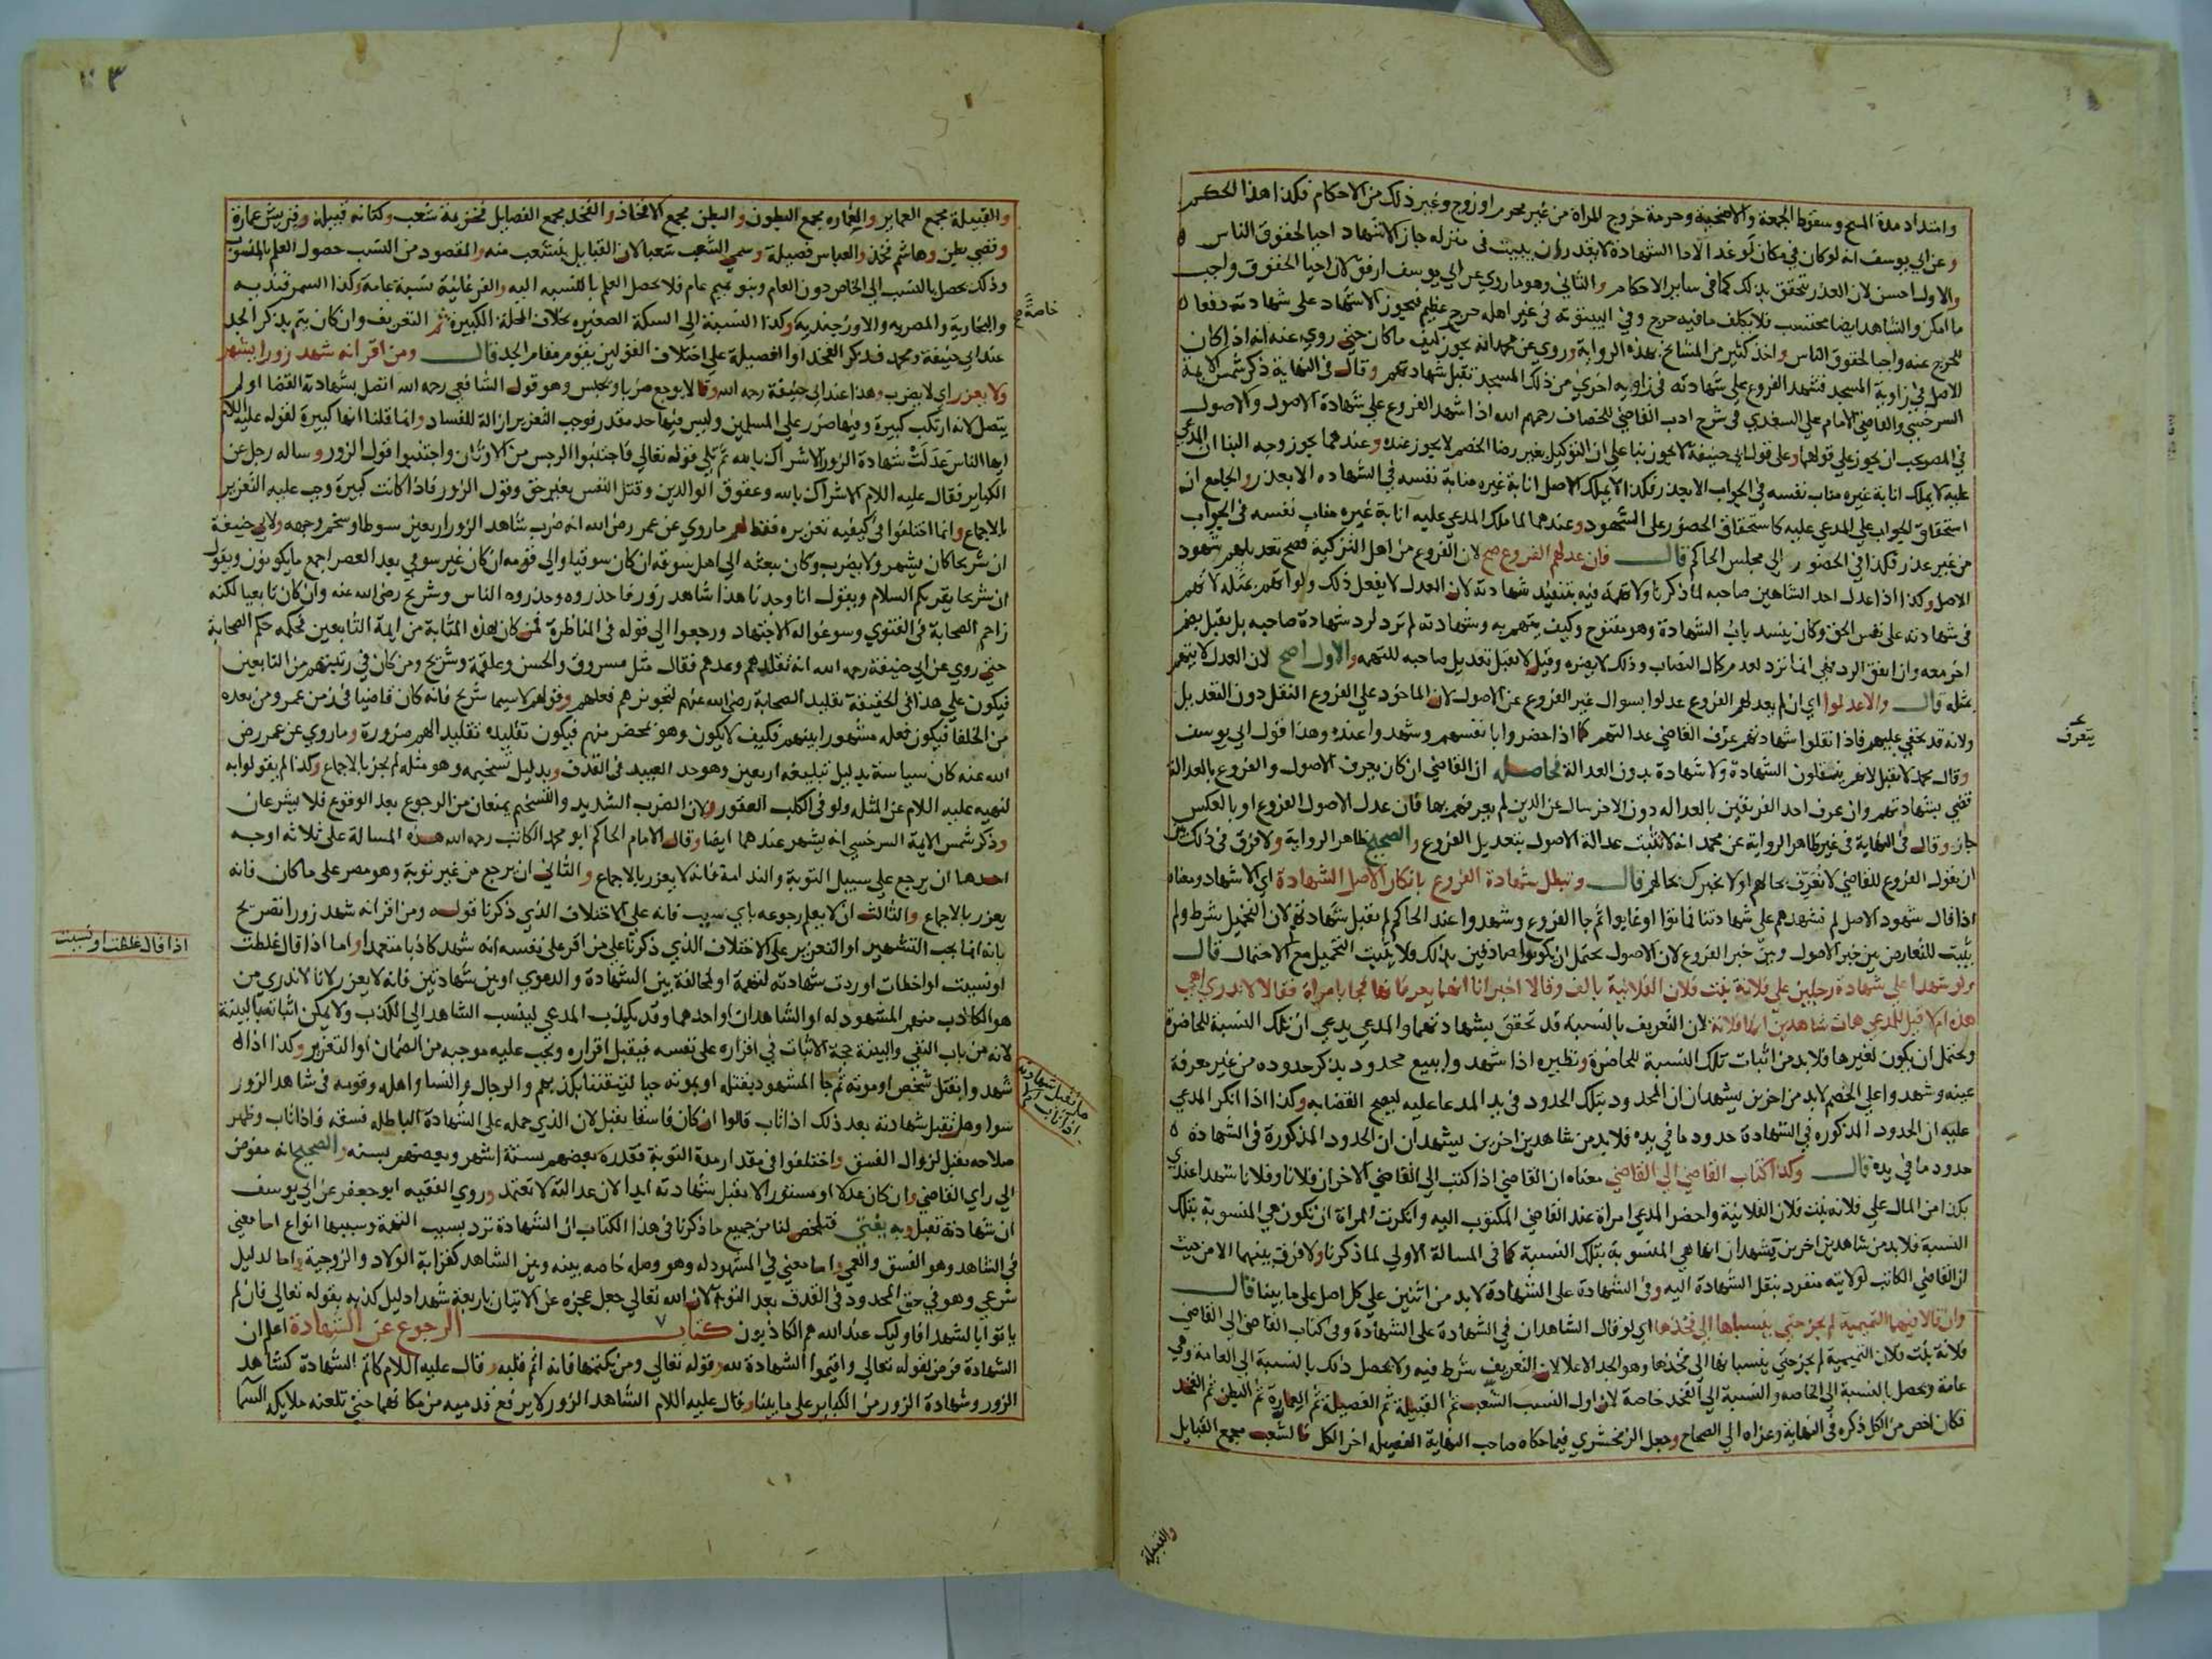 وامتداد مدة المسح وسقوط الجمعة والاضحية وحرمة خروج المراة من غير محرم او زوج وغير ذلك من الاحكام فكذا هذا الحكم
وعن ابي يوسف انه لو كان في مكان لو غدا لادا الشهادة لا يقدر ان يبيت في منزله جاز الاشهاد احيا لحقوق الناس
والاول احسن لان العذر يتحقق بذلك كما في ساير الاحكام والثاني وهو ما روي عن ابي يوسف ارفق لان احيا الحقوق واجب
ما امكن والشاهد ايضا محتسب فلا يكلف ما فيه حرج وفي البيتوتة في غير اهله حرج عظيم فيجوز الاشهاد على شهادته دفعا
للحرج عنه واحيا لحقوق الناس واخذ كثير من المشايخ بهذه الرواية وروي عن محمد انه يجوز كيف ما كان حتى روي عنه انه اذا كان
الاصل في زاوية المسجد فشهد الفروع على شهادته في زاوية اخرى من ذلك المسجد تقبل شهادتهم وقال في النهاية ذكر شمس الايمة
السرخسي والقاضي الامام علي السغدي في شرح ادب القاضي للخصاف رحمهم الله اذا شهد الفروع على شهادة الاصول والاصول
في المصر يجب ان يجوز على قولهما وعلى قول ابي حنيفة لا يجوز بنا على ان التوكيل بغير رضا الخصم لا يجوز عنده وعندهما يجوز وجه البنا ان المدعي
عليه لا يملك انابة غيره مناب نفسه في الجواب الا بعذر فكذا لا يملك الاصل انابة غيره منابة نفسه في الشهاده الا بعذر والجامع ان
استحقاق الجواب على المدعي عليه كاستحقاق الحضور على الشهود وعندهما لما ملك المدعي عليه انابة غيره مناب نفسه في الجواب
من غير عذر فكذا في الحضور الى مجلس الحاكم قال فان عدلهم الفروع صح لان الفروع من اهل التزكية فصح تعديلهم شهود
الاصل وكذا اذا عدل احد الشاهدين صاحبه لما ذكرنا ولا تهمة فيه بتنفيذ شهادته لان العدل لا يفعل ذلك ولو اتهم بمثله لاتهم
في شهادته على نفس الحق وكان ينسد باب الشهادة وهو مفتوح وكيف يتهم به وشهادته لم ترد لرد شهادة صاحبه بل يقبل بضم
اخر معه وان اتفق الرد فهي انما ترد لعدم كمال النصاب وذلك لا يضره وقيل لا يقبل تعديل صاحبه للتهمه والاول اصح لان العدل لا يتهم
بمثله قال والا عدلوا اي ان لم يعدلهم الفروع عدلوا بسوال غير الفروع عن الاصول لان الماخوذ على الفروع النقل دون التعديل
ولانه قد يخفي عليهم فاذا نقلوا شهادتهم عرف القاضي عدالتهم كما اذا حضروا بانفسهم وشهدوا عنده وهذا قول ابي يوسف
وقال محمد لا تقبل لانهم ينقلون الشهادة ولا شهادة بدون العدالة فحاصله ان القاضي ان كان يعرف الاصول والفروع بالعدالة
قضي بشهادتهم وان عرف احد الفريقين بالعداله دون الاخر سال عن الذين لم يعرفهم بها فان عدل الاصول الفروع او بالعكس
جاز وقال في النهاية في غير ظاهر الرواية عن محمد انه لا تثبت عدالة الاصول بتعديل الفروع والصحيح ظاهر الرواية ولا فرق في ذلك بين
ان يقول الفروع للقاضي لا نعرف بحالهم او لا نخبرك بحالهم قال وتبطل شهادة الفروع بانكار الاصل الشهادة اي الاشهاد ومعناه
اذا قال شهود الاصل لم نشهدهم على شهادتنا فماتوا او غابوا ثم جا الفروع وشهدوا عند الحاكم لم تقبل شهادتهم لان التحميل شرط ولم
يثبت للتعارض بين خبر الاصول وبين خبر الفروع لان الاصول يحتمل ان يكونوا صادقين بذلك فلا يثبت التحميل مع الاحتمال قال
ولو شهدا على شهادة رجلين على فلانة بنت فلان الفلانية بالف وقالا اخبرانا انهما يعرفانها فجا بامراة فقالا لا ندري اهي
هذه ام لا قيل للمدعي هات شاهدين انها فلانة لان التعريف بالنسبة قد تحقق بشهادتهما والمدعي يدعي ان تلك النسبة للحاضرة
ويحتمل ان يكون لغيرها فلا بد من اثبات تلك النسبة للحاضرة ونظيره اذا شهدوا ببيع محدود بذكر حدوده من غير معرفة
عينه وشهدوا على الخصم لا بد من اخرين يشهدان ان المحدود بتلك الحدود في يد المدعا عليه ليصح القضا به وكذا اذا انكر المدعي
عليه ان الحدود المذكوره في الشهادة حدود ما في يده فلا بد من شاهدين اخرين يشهدان ان الحدود المذكورة في الشهادة
حدود ما في يده قال وكذا كتاب القاضي الى القاضي معناه ان القاضي اذا كتب الى القاضي الاخر ان فلانا وفلانا شهدا عندي
بكذا من المال على فلانه بنت فلان الفلانية واحضر المدعي امراة عند القاضي المكتوب اليه وانكرت المراة ان تكون هي المنسوبة بتلك
النسبة فلا بد من شاهدين اخرين يشهدان انها هي المنسوبة بتلك النسبة كما في المسالة الاولي لما ذكرنا ولا فرق بينهما الا من حيث
ان القاضي الكاتب لولايته منفرد بنقل الشهادة اليه وفي الشهادة على الشهادة لا بد من اثنين على كل اصل على ما بينا قال
وان قالا فيهما التميمية لم يجز حتى ينسباها الى فخذها اي لو قال الشاهدان في الشهادة على الشهادة وفي كتاب القاضي الى القاضي
فلانة بنت فلان التميمية لم يجز حتى ينسباها الى فخذها وهو الجد الاعلا لان التعريف شرط فيه ولا يحصل ذلك بالنسبة الى العامة وهي
عامة ويحصل بالنسبة الى الخاصه والنسبة الى الفخذ خاصة لان اول النسب الشعب ثم القبيلة ثم الفصيلة ثم العمارة ثم البطن ثم الفخذ
فكان اخص من الكل ذكره في النهاية وعزاه الى الصحاح وجعل الزمخشري فيما حكاه صاحب النهاية الفصيله اخر الكل فالشعب مجمع القبايل
يتعرف
والقبيلة
٣
والقبيلة مجمع العماير والعماره مجمع البطون والبطن مجمع الافخاذ والفخذ مجمع الفصايل فخزيمة شعب وكنانه قبيلة وقريش عمارة
وقصي بطن وهاشم فخذ والعباس فصيلة وسمي الشعب شعبا لان القبايل يتشعب منه والمقصود من النسب حصول العلم بالمنسوب
وذلك يحصل بالنسب الى الخاص دون العام وبنو تميم عام فلا يحصل العلم بالنسبه اليه والفرغانية نسبة عامة وكذا السمرقنديه
والبخارية والمصريه والاوزجنديه وكذا النسبة الى السكة الصغيره بخلاف المحلة الكبيرة ثم التعريف وان كان يتم بذكر الجد
عند ابي حنيفة ومحمد فذكر الفخذ او الفصيلة على اختلاف القولين يقوم مقام الجد قال ومن اقر انه شهد زورا يشهر
ولا يعزر اي لا يضرب وهذا عند ابي حنيفة رحمه الله وقالا يوجع ضربا ويحبس وهو قول الشافعي رحمه الله اتصل بشهادته القضا او لم
يتصل لانه ارتكب كبيرة وفيها ضرر على المسلمين وليس فيها حد مقدر فوجب التعزير ازالة للفساد وانما قلنا انها كبيرة لقوله عليه اللام
ايها الناس عدلت شهادة الزور الاشراك بالله ثم تلي قوله تعالي فاجتنبوا الرجس من الاوثان واجتنبوا قول الزور وساله رجل عن
الكباير فقال عليه اللام الاشراك بالله وعقوق الوالدين وقتل النفس بغير حق وقول الزور فاذا كانت كبيرة وجب عليه التعزير
بالاجماع وانما اختلفوا في كيفيه تعزيره فقط لهم ما روي عن عمر رضي الله انه ضرب شاهد الزور اربعين سوطا وسخم وجهه ولابي حنيفة
ان شريحا كان يشهر ولا يضرب وكان يبعثه الى اهل سوقه ان كان سوقيا والى قومه ان كان غير سوقي بعد العصر اجمع ما يكونون ويقول
ان شريحا يقريكم السلام ويقول انا وجدنا هذا شاهد زور فاحذروه وحذروه الناس وشريح رضي الله عنه وان كان تابعيا لكنه
زاحم الصحابة في الفتوي وسوغوا له الاجتهاد ورجعوا الى قوله في المناظرة فمن كان بهذه المثابة من ايمة التابعين فحكمه حكم الصحابة
حتى روي عن ابي حنيفة رحمه الله انه نقلدهم وعدهم فقال مثل مسروق والحسن وعلقمة وشريح ومن كان في رتبتهم من التابعين
فيكون على هذا في الحقيقة تقليد الصحابة رضي الله عنهم لتجويزهم فعلهم وقولهم لا سيما شريح فانه كان قاضيا في زمن عمر ومن بعده
من الخلفا فيكون فعله مشهورا بينهم فكيف لا يكون وهو بمحضر منهم فيكون تقليده تقليدا لهم ضرورة وما روي عن عمر رضي
الله عنه كان سياسة بدليل تبليغه اربعين وهو حد العبيد في القذف وبدليل تسخيمه وهو مثله لم يجز بالاجماع وكذا لم يقولوا به
لنهيه عليه اللام عن المثله ولو في الكلب العقور ولان الضرب الشديد والتسخيم يمنعان من الرجوع بعد الوقوع فلا يشرعان
وذكر شمس الايمة السرخسي انه يشهر عندهما ايضا وقال الامام الحاكم ابو محمد الكاتب رحمه الله هذه المسالة على ثلاثه اوجه
احدها ان يرجع على سبيل التوبة والندامة فانه لا يعزر بالاجماع والثاني ان يرجع من غير توبة وهو مصر على ما كان فانه
يعزر بالاجماع والثالث ان لا يعلم رجوعه باي سبب فانه على الاختلاف الذي ذكرنا قوله ومن اقر انه شهد زورا تصريح
بانه انما يجب التشهير او التعزير على الاختلاف الذي ذكرنا على من اقر على نفسه انه شهد كاذبا متعمدا واما اذا قال غلطت
او نسيت او اخطات او ردت شهادته لتهمة او لمخالفة بين الشهادة والدعوي او بين شهادتين فانه لا يعزر لانا لا ندري من
هو الكاذب منهم المشهود له او الشاهدان او احدهما وقد يكذب المدعي لينسب الشاهد الى الكذب ولا يمكن اثباته بالبينة
لانه من باب النفي والبينة حجة الاثبات في اقراره على نفسه فيقبل اقراره ويجب عليه موجبه من الضمان او التعزير وكذا اذا
شهدوا بقتل شخص او موته ثم جا المشهود بقتله او بموته حيا لتيقننا بكذبهم والرجال والنسا واهل وقومه في شاهد الزور
سوا وهل تقبل شهادته بعد ذلك اذا تاب قالوا ان كان فاسقا يقبل لان الذي حمله على الشهادة الباطله فسقه فاذا تاب وظهر
صلاحه يقبل لزوال الفسق واختلفوا في مقدار مدة التوبة فقدره بعضهم بستة اشهر وبعضهم بسنه والصحيح انه مفوض
الى راي القاضي وان كان عدلا او مستورا لا يقبل شهادته ابدا لان عدالته لا تعتمد وروي الفقيه ابو جعفر عن ابي يوسف
ان شهادته تقبل وبه يفتي فتلخص لنا من جميع ما ذكرنا في هذا الكتاب ان الشهادة ترد بسبب التهمة وسببها انواع اما معني
في الشاهد وهو الفسق والعمي واما معني في المشهود له وهو وصله خاصه بينه وبين الشاهد كقرابة الولاد والزوجية واما لدليل
شرعي وهو في حق المحدود في القذف بعد التوبة لان الله تعالى جعل عجزه عن الاتيان باربعة شهدا دليل كذبه بقوله تعالى فان لم
ياتوا بالشهدا فاوليك عند الله هم الكاذبون كتاب الرجوع عن الشهادة اعلم ان
الشهادة فرض لقوله تعالى واقيموا الشهادة لله وقوله تعالي ومن يكتمها فانه اثم قلبه وقال عليه اللام كاتم الشهادة كشاهد
الزور وشهادة الزور من الكباير على ما بينا وقال عليه اللام الشاهد الزور لا يرفع قدميه من مكانهما حتى تلعنه ملايكه السما
خاصة
اذا قال غلطت او نسيت
ما تقبل شهادته
اذا تاب